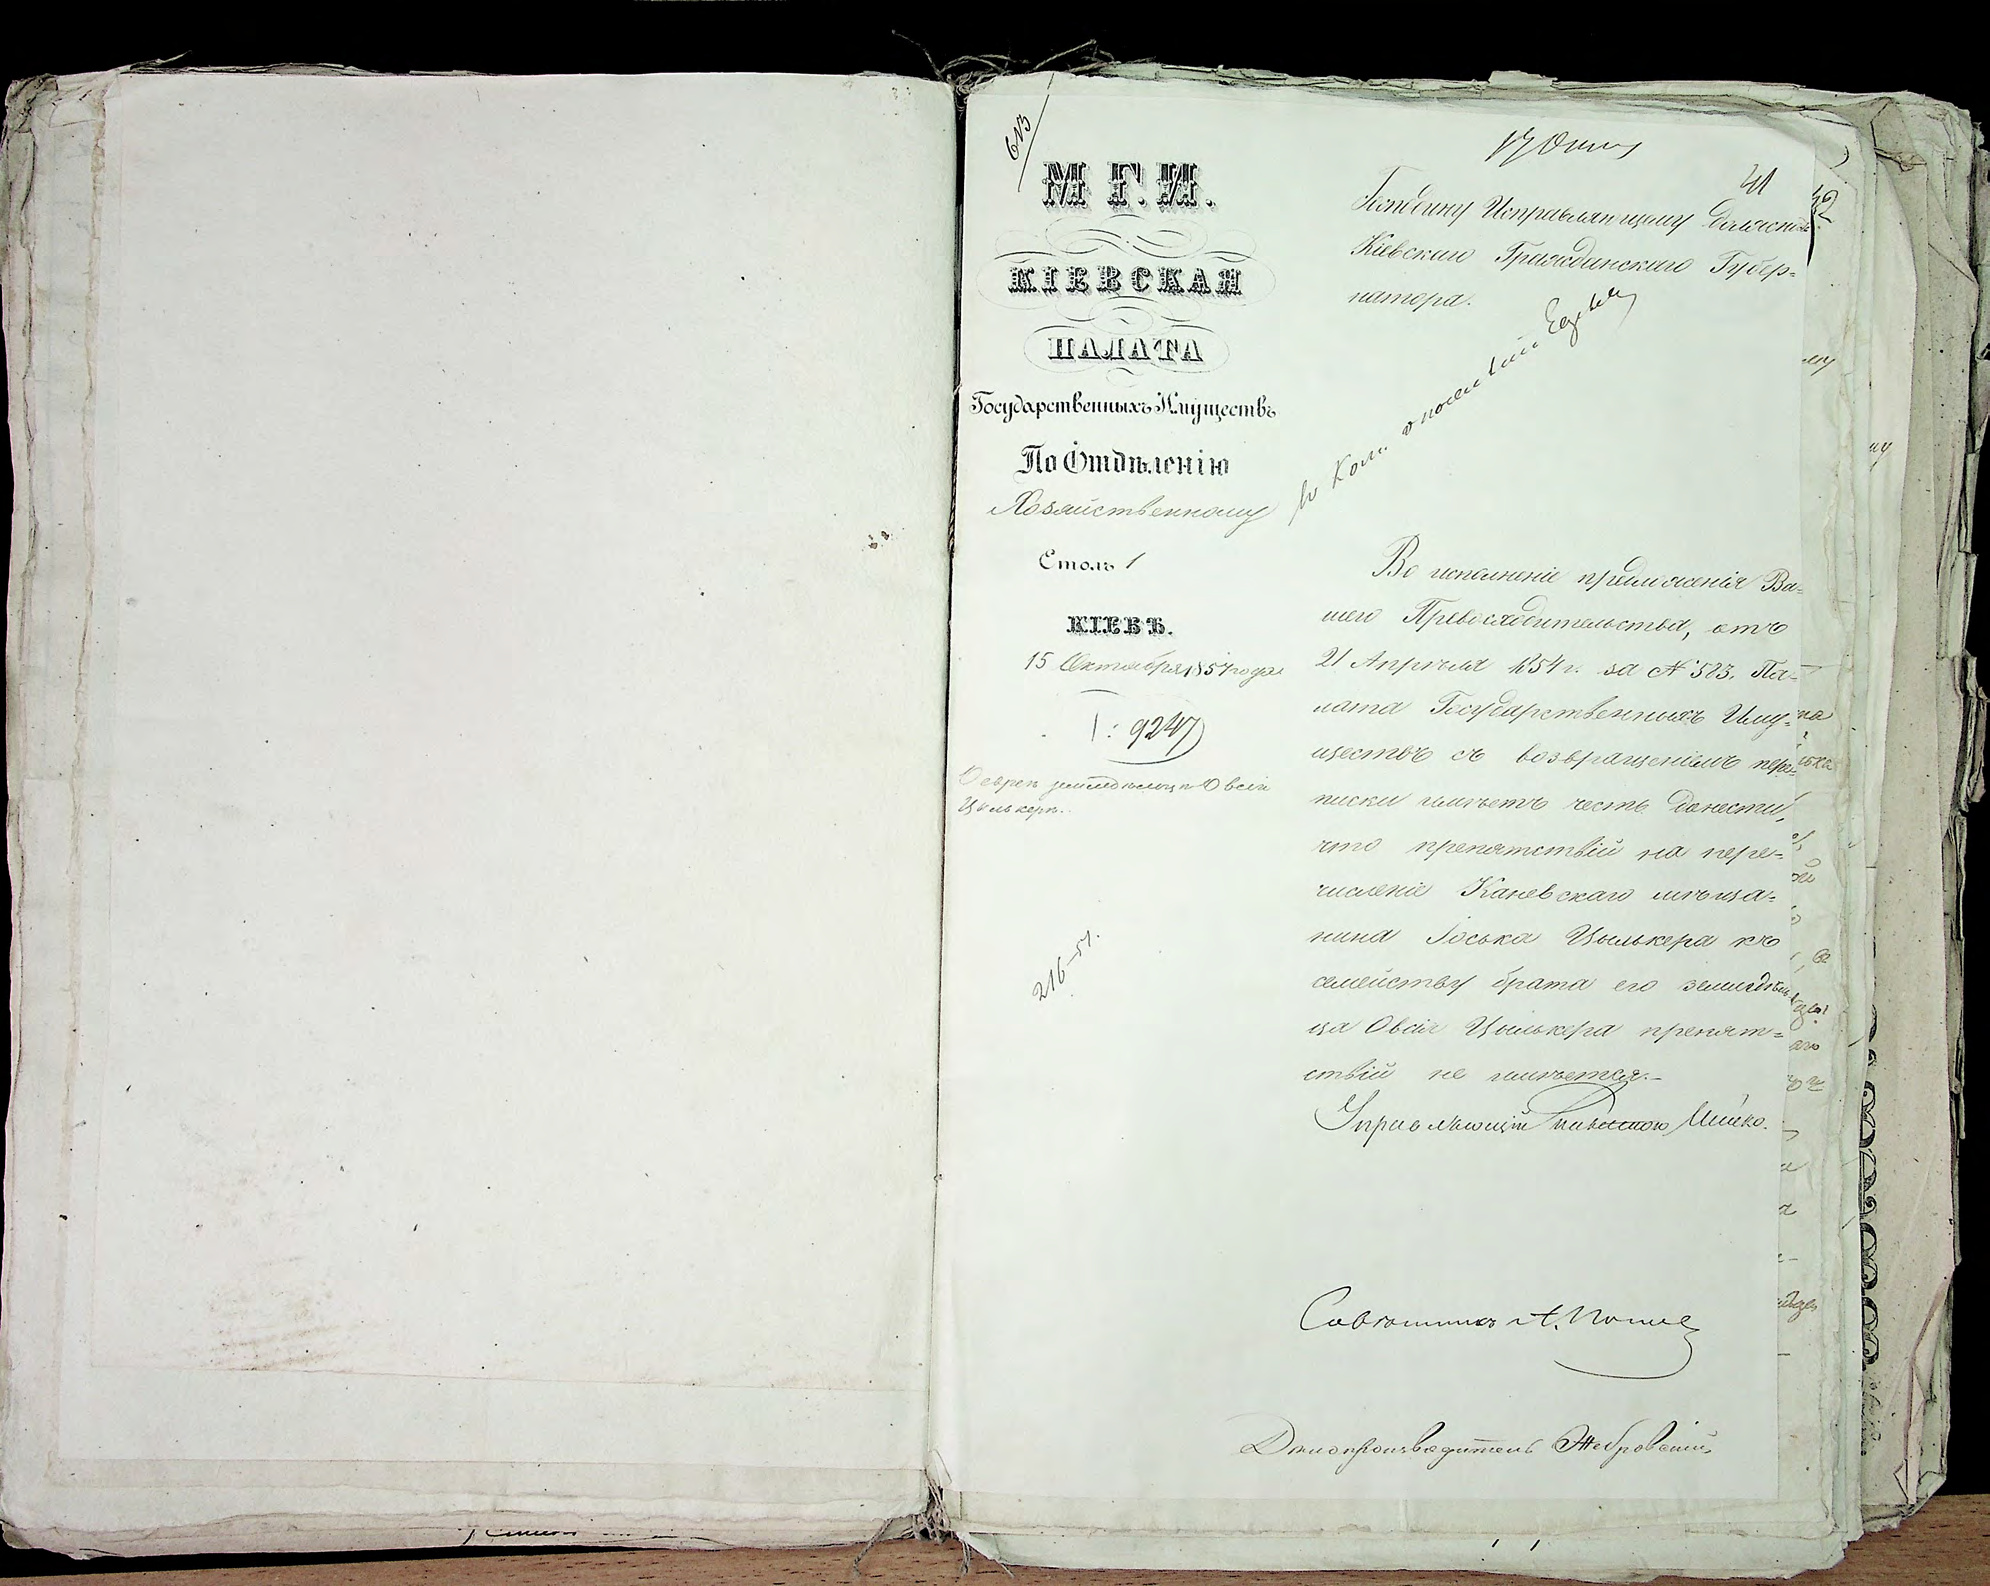 613
М Г. И.
КІЕВСКАЯ
ПАЛАТА
Государственныхъ Имуществъ
По Отдѣленію
Хозяйственному
Столъ 1
КІЕВЪ.
15 Октября 1857 года
1: 9247
О евреѣ земледѣльцѣ Овсіи
Цылькерѣ.
216-57.
17 Окт
41
Господину Исправляющему должность
Кіевскаго Гражданскаго Губер=
натора.
Во исполненіе предложенія Ва=
шего Превосходительства, отъ
21 Апрѣля 1854 г. за № 583, Па=
лата Государственныхъ Иму=
ществъ съ возвращеніемъ пере=
писки имѣетъ честь донести,
что препятствій на пере=
численіе Каневскаго мѣща=
нина Іоська Цылькера къ
семейству брата его земледѣль
ца Овсія Цылькера препят=
ствій не имѣется.
Управляющій Палатою
Совѣтникъ А.
Дѣлопроизводитель Жебровскій